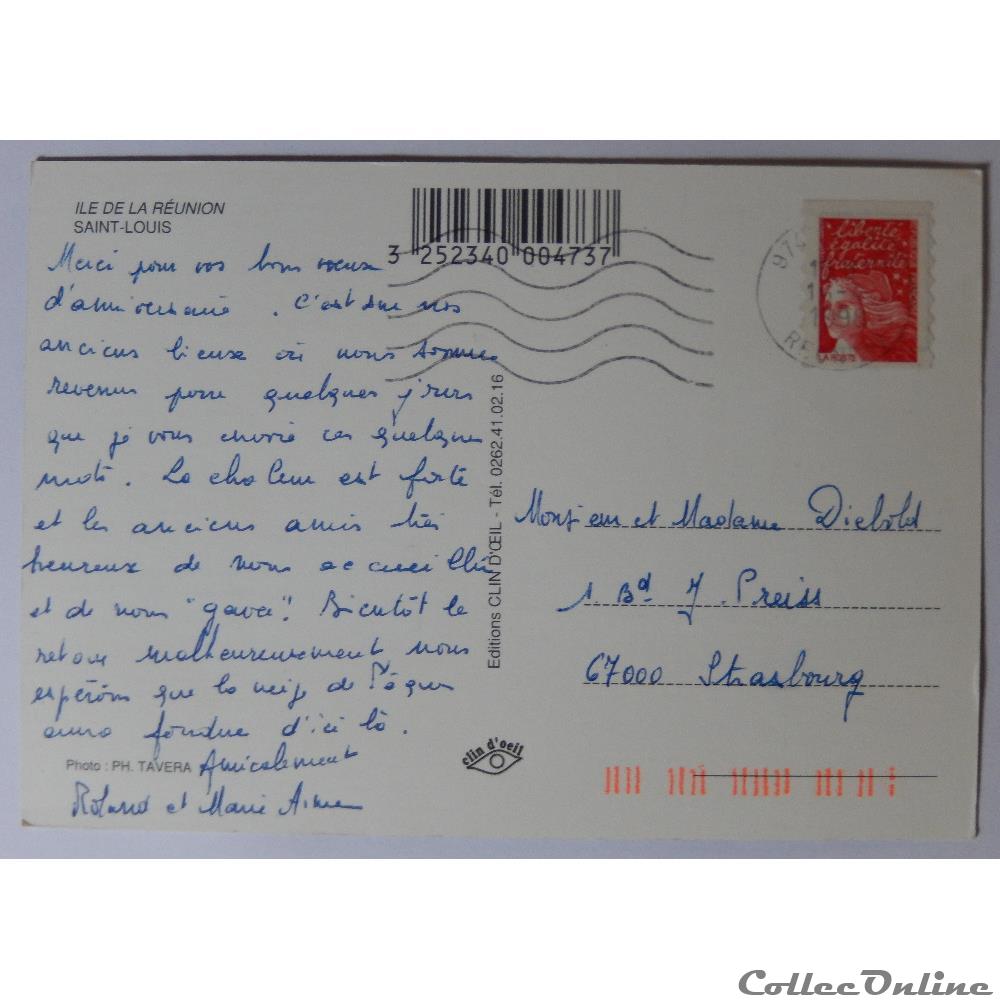 ILE DE LA RÉUNION
SAINT-LOUIS
3 252340 004737
Merci pour vos bons voeux
d'anniversaire. C'est sur nos
anciens lieux où nous sommes
revenus pour quelques jours
que je vous envoie ces quelques
mots. La chaleur est forte
et les anciens amis très
heureux de nous accueillir
et de nous "gaver"! Bientôt le
retour malheureusement nous
espérons que la neige de Pâques
aura fondue d'ici là.
Amicalement
Roland et Marie Aimée
Photo : PH. TAVERA
Editions CLIN D'ŒIL - Tél. 0262.41.02.16
clin d'oeil
liberté
égalité
fraternité
LA POSTE
974
RE
Monsieur et Madame Diebold
1 Bd J. Preiss
67000 Strasbourg
CollecOnline